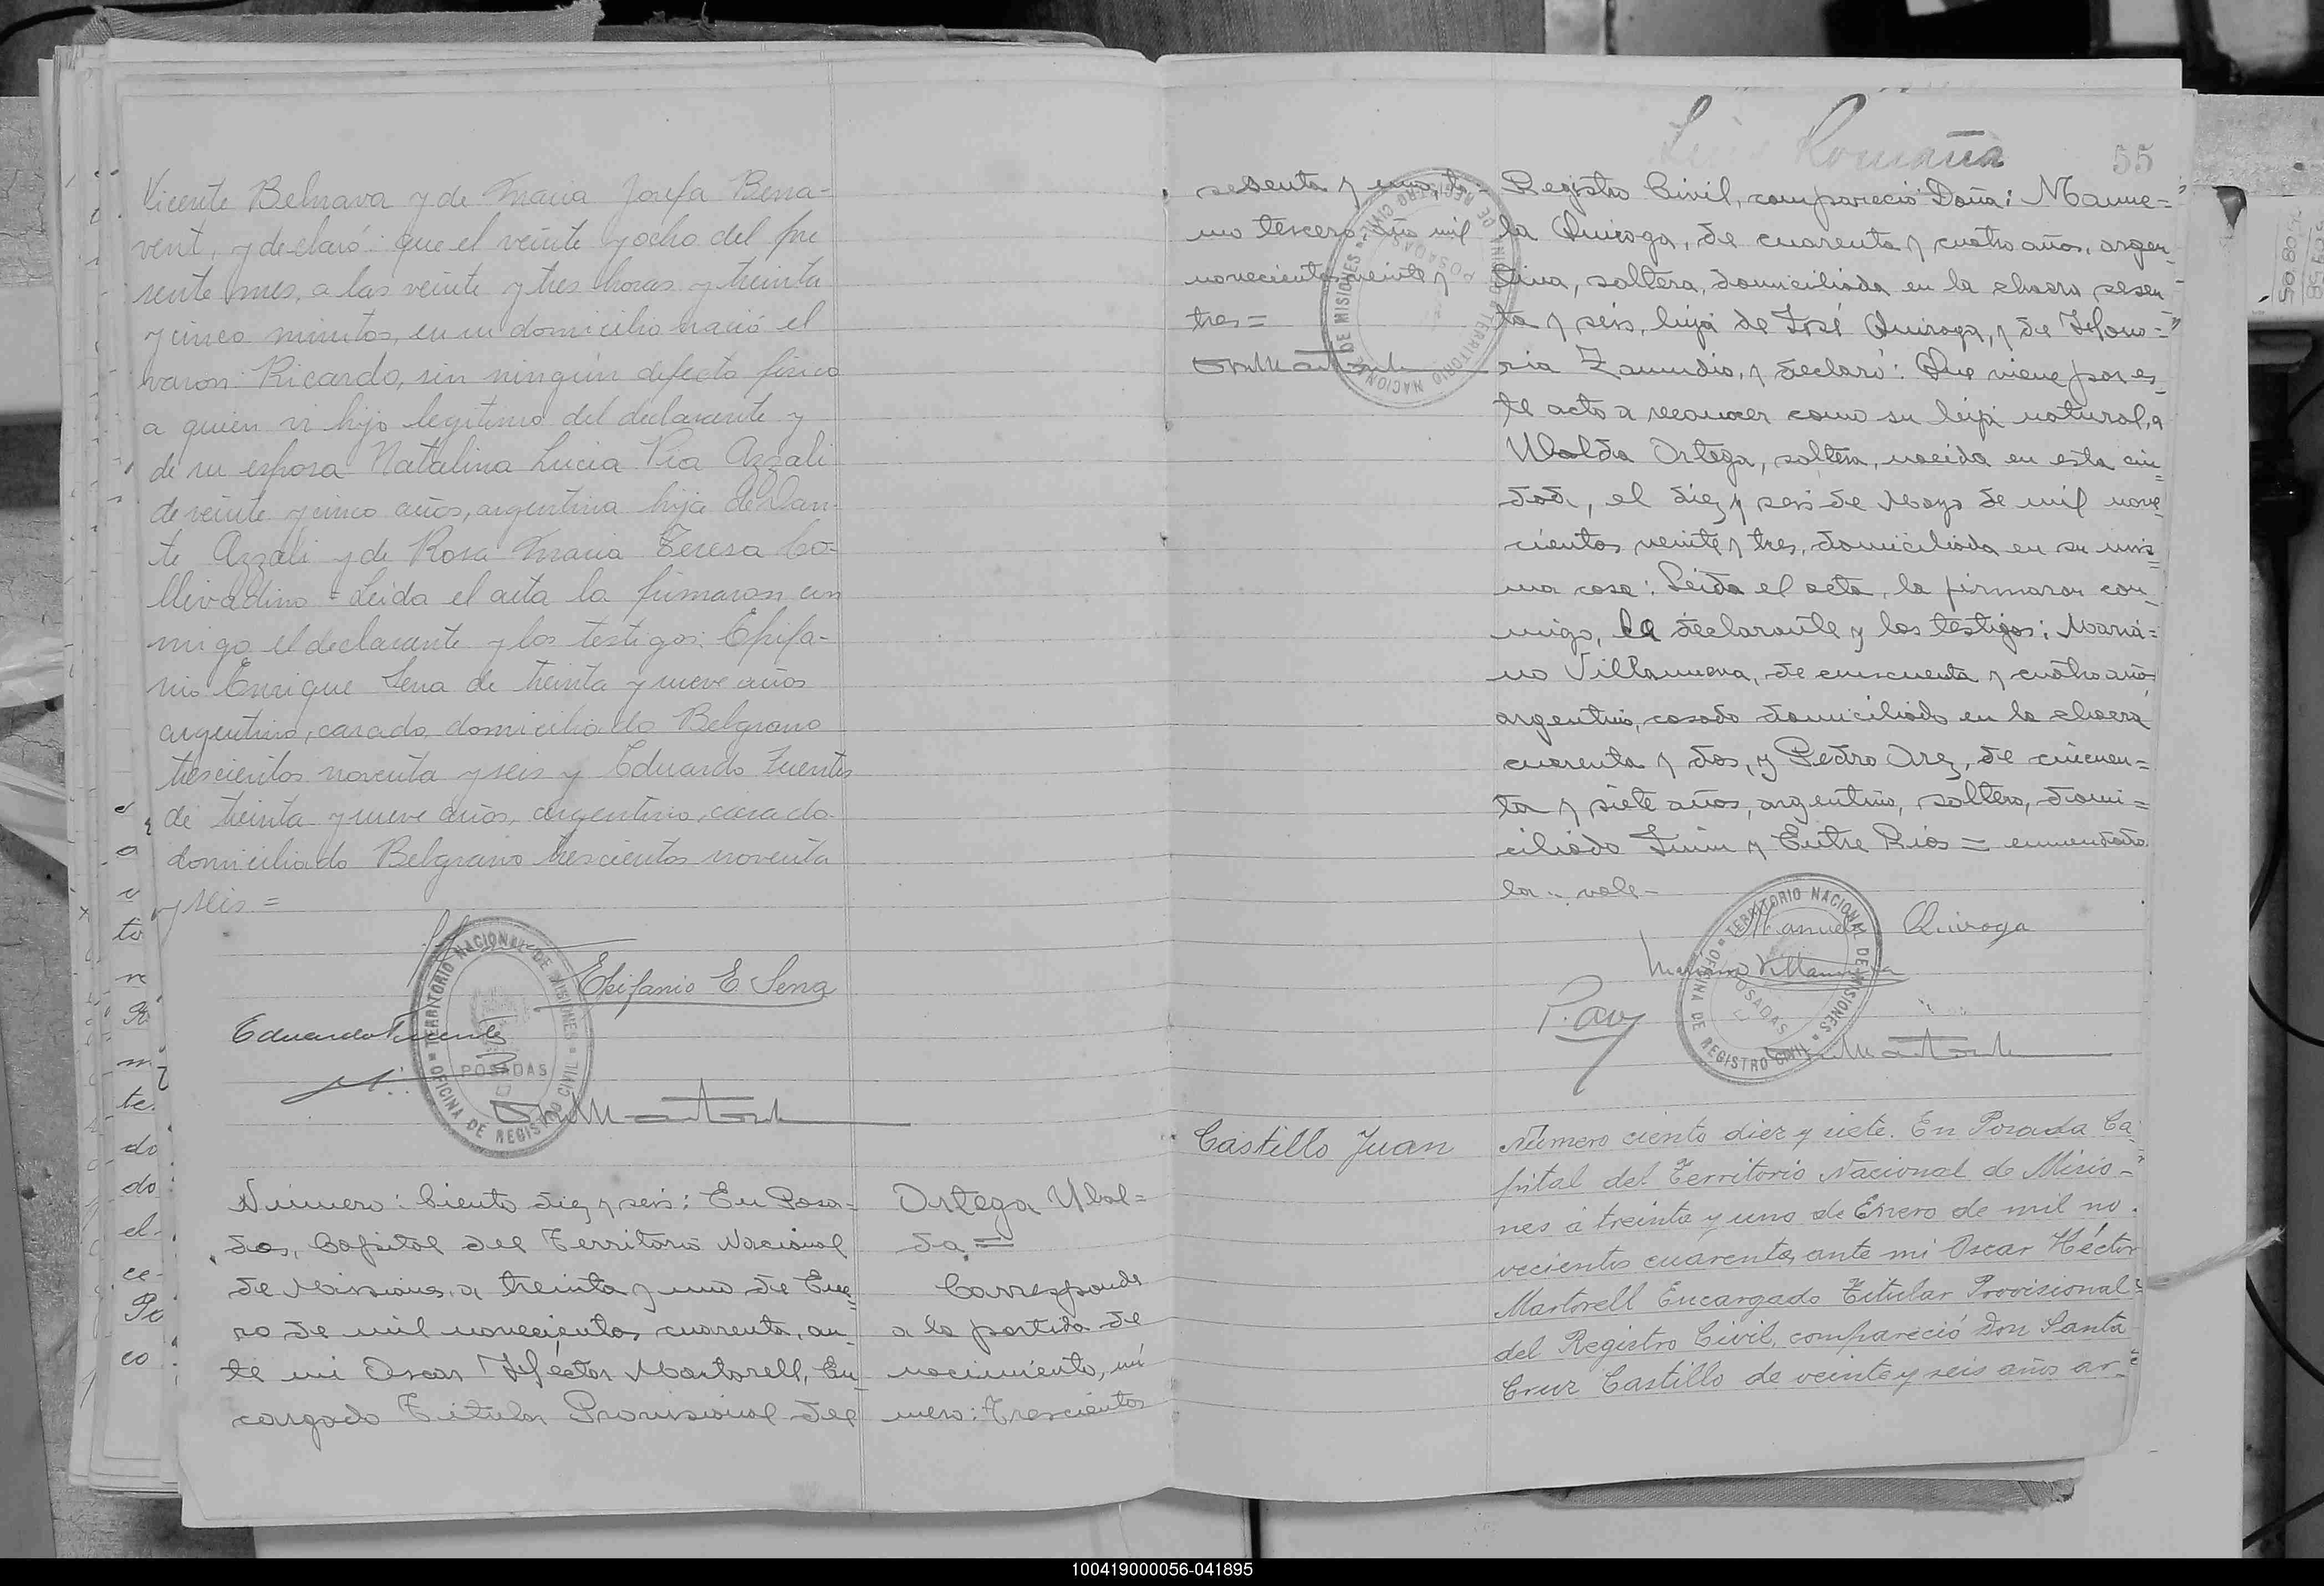 Vicente Belnava y de Maria Josefa Bena-
vent, y declaró: que el veinte y ocho del pre
sente mes, a las veinte y tres horas y treinta
y cinco minutos, en su domicilio nació el
varon: Ricardo, sin ningún defecto físico
a quien vi hijo legitimo del declarante y
de su esposa Natalina Lucia Pia Azzali
de veinte y cinco años, argentina hija de Dan-
te Azzali y de Rosa Maria Teresa Co-
llivadino - Leida el acta la firmaron con
migo el declarante y los testigos: Epifa-
nio Enrique Sena de treinta y nueve años
argentino, casado, domiciliado Belgrano
trescientos noventa y seis y Eduardo Fuentes
de treinta y nueve años, argentino, casado
domiciliado Belgrano trescientos noventa
y seis =
Epifanio E. Sena
Eduardo Fuentes
TERRITORIO NACIONAL DE MISIONES
OFICINA DE REGISTRO CIVIL
POSADAS
Número: Ciento diez y seis: En Posa-
das, Capital del Territorio Nacional
de Misiones, a treinta y uno de Ene-
ro de mil novecientos cuarenta, an
te mi Oscar Héctor Martorell, En-
cargado Titular Provisional del
Ortega Ubal=
da =
Corresponde
a la partida de
nacimiento, nú
mero: Trescientos
sesenta y uno, to-
mo tercero, año mil
novecientos veinte y
tres =
TERRITORIO NACIONAL DE MISIONES
OFICINA DE REGISTRO CIVIL
POSADAS
Luis Romaña
55
Registro Civil, compareció Doña: Manue=
la Quiroga, de cuarenta y cuatro años, argen
tina, soltera, domiciliada en la chacra sesen
ta y seis, hija de José Quiroga, y de Hono=
ria Zamudio, y declaró: Que viene por es-
te acto a reconocer como su hija natural, a
Ubalda Ortega, soltera, nacida en esta ciu
dad, el diez y seis de Mayo de mil nove
cientos veinte y tres, domiciliada en su mis
ma casa: Leida el acta, la firmaron con-
migo, la declarante y los testigos: Maria=
no Villanueva, de cincuenta y cuatro años
argentino, casado domiciliado en la chacra
cuarenta y dos, y Pedro Arez, de cincuen=
ta y siete años, argentino, soltero, domi=
ciliado Junin y Entre Rios = enmendado
la : vale -
Manuela Quiroga
Mariano Villanueva
TERRITORIO NACIONAL DE MISIONES
OFICINA DE REGISTRO CIVIL
POSADAS
Castillo Juan
Número ciento diez y siete. En Posada Ca-
pital del Territorio Nacional de Misio-
nes á treinta y uno de Enero de mil no.
vecientos cuarenta, ante mi Oscar Héctor
Martorell Encargado Titular Provisional
del Registro Civil, compareció Don Santa
Cruz Castillo de veinte y seis años ar-
100419000056-041895